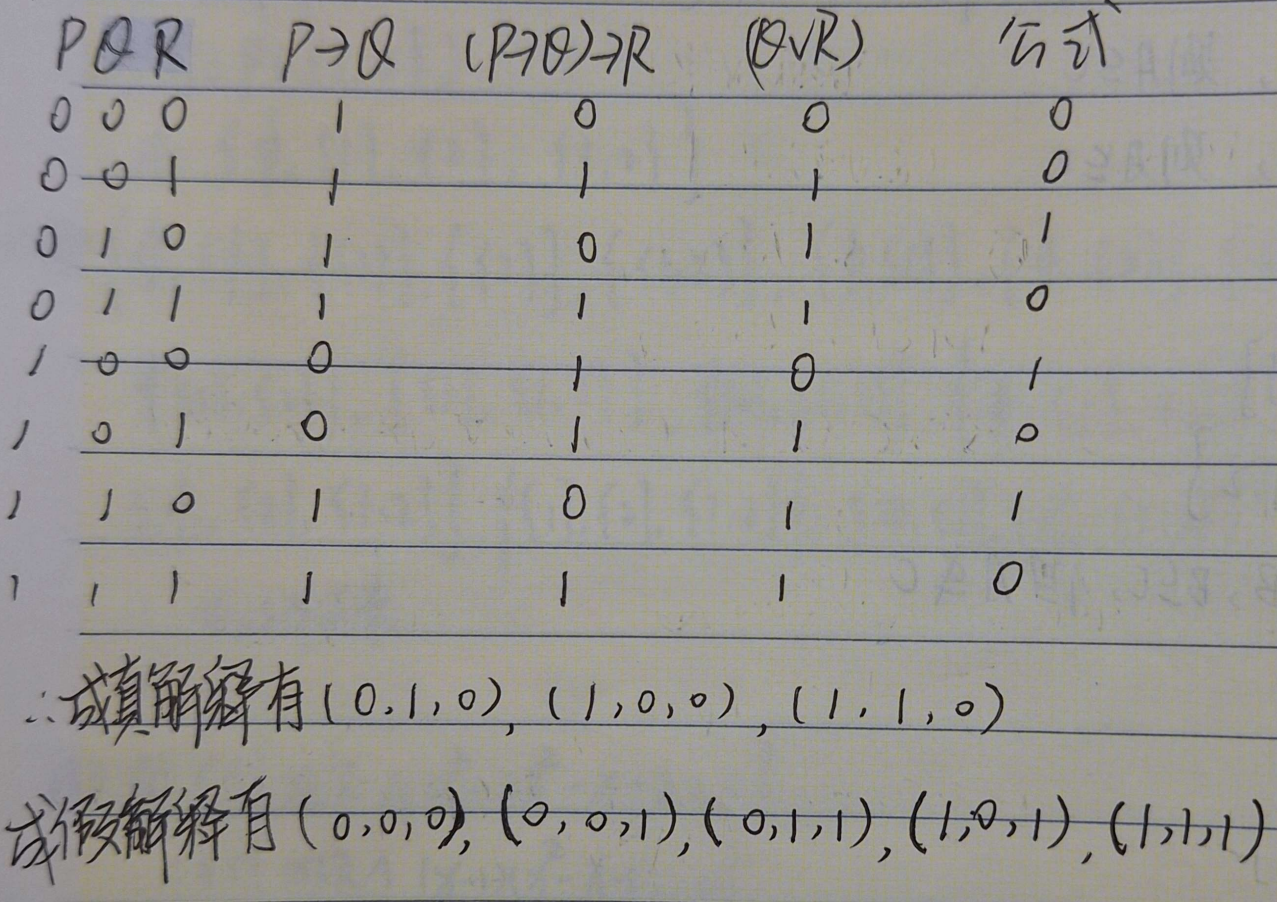 P Q R P→Q (P→Q)→R (Q∨R) 公式
0 0 0 1 0 0 0
0 0 1 1 1 1 0
0 1 0 1 0 1 1
0 1 1 1 1 1 0
1 0 0 0 1 0 1
1 0 1 0 1 1 0
1 1 0 1 0 1 1
1 1 1 1 1 1 0
∴成真解释有(0,1,0),(1,0,0),(1,1,0)
成假解释有(0,0,0),(0,0,1),(0,1,1),(1,0,1),(1,1,1)